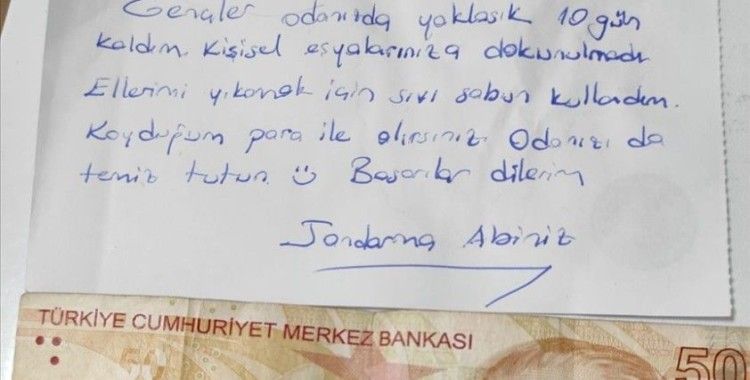 Gençler odanızda yaklaşık 10 gün
kaldım. Kişisel eşyalarınıza dokunulmadı
Ellerimi yıkamak için sıvı sabun kullandım.
Koyduğum para ile alırsınız. Odanızı da
temiz tutun. Başarılar dilerim
Jandarma Abiniz
TÜRKİYE CUMHURİYET MERKEZ BANKASI
50
50